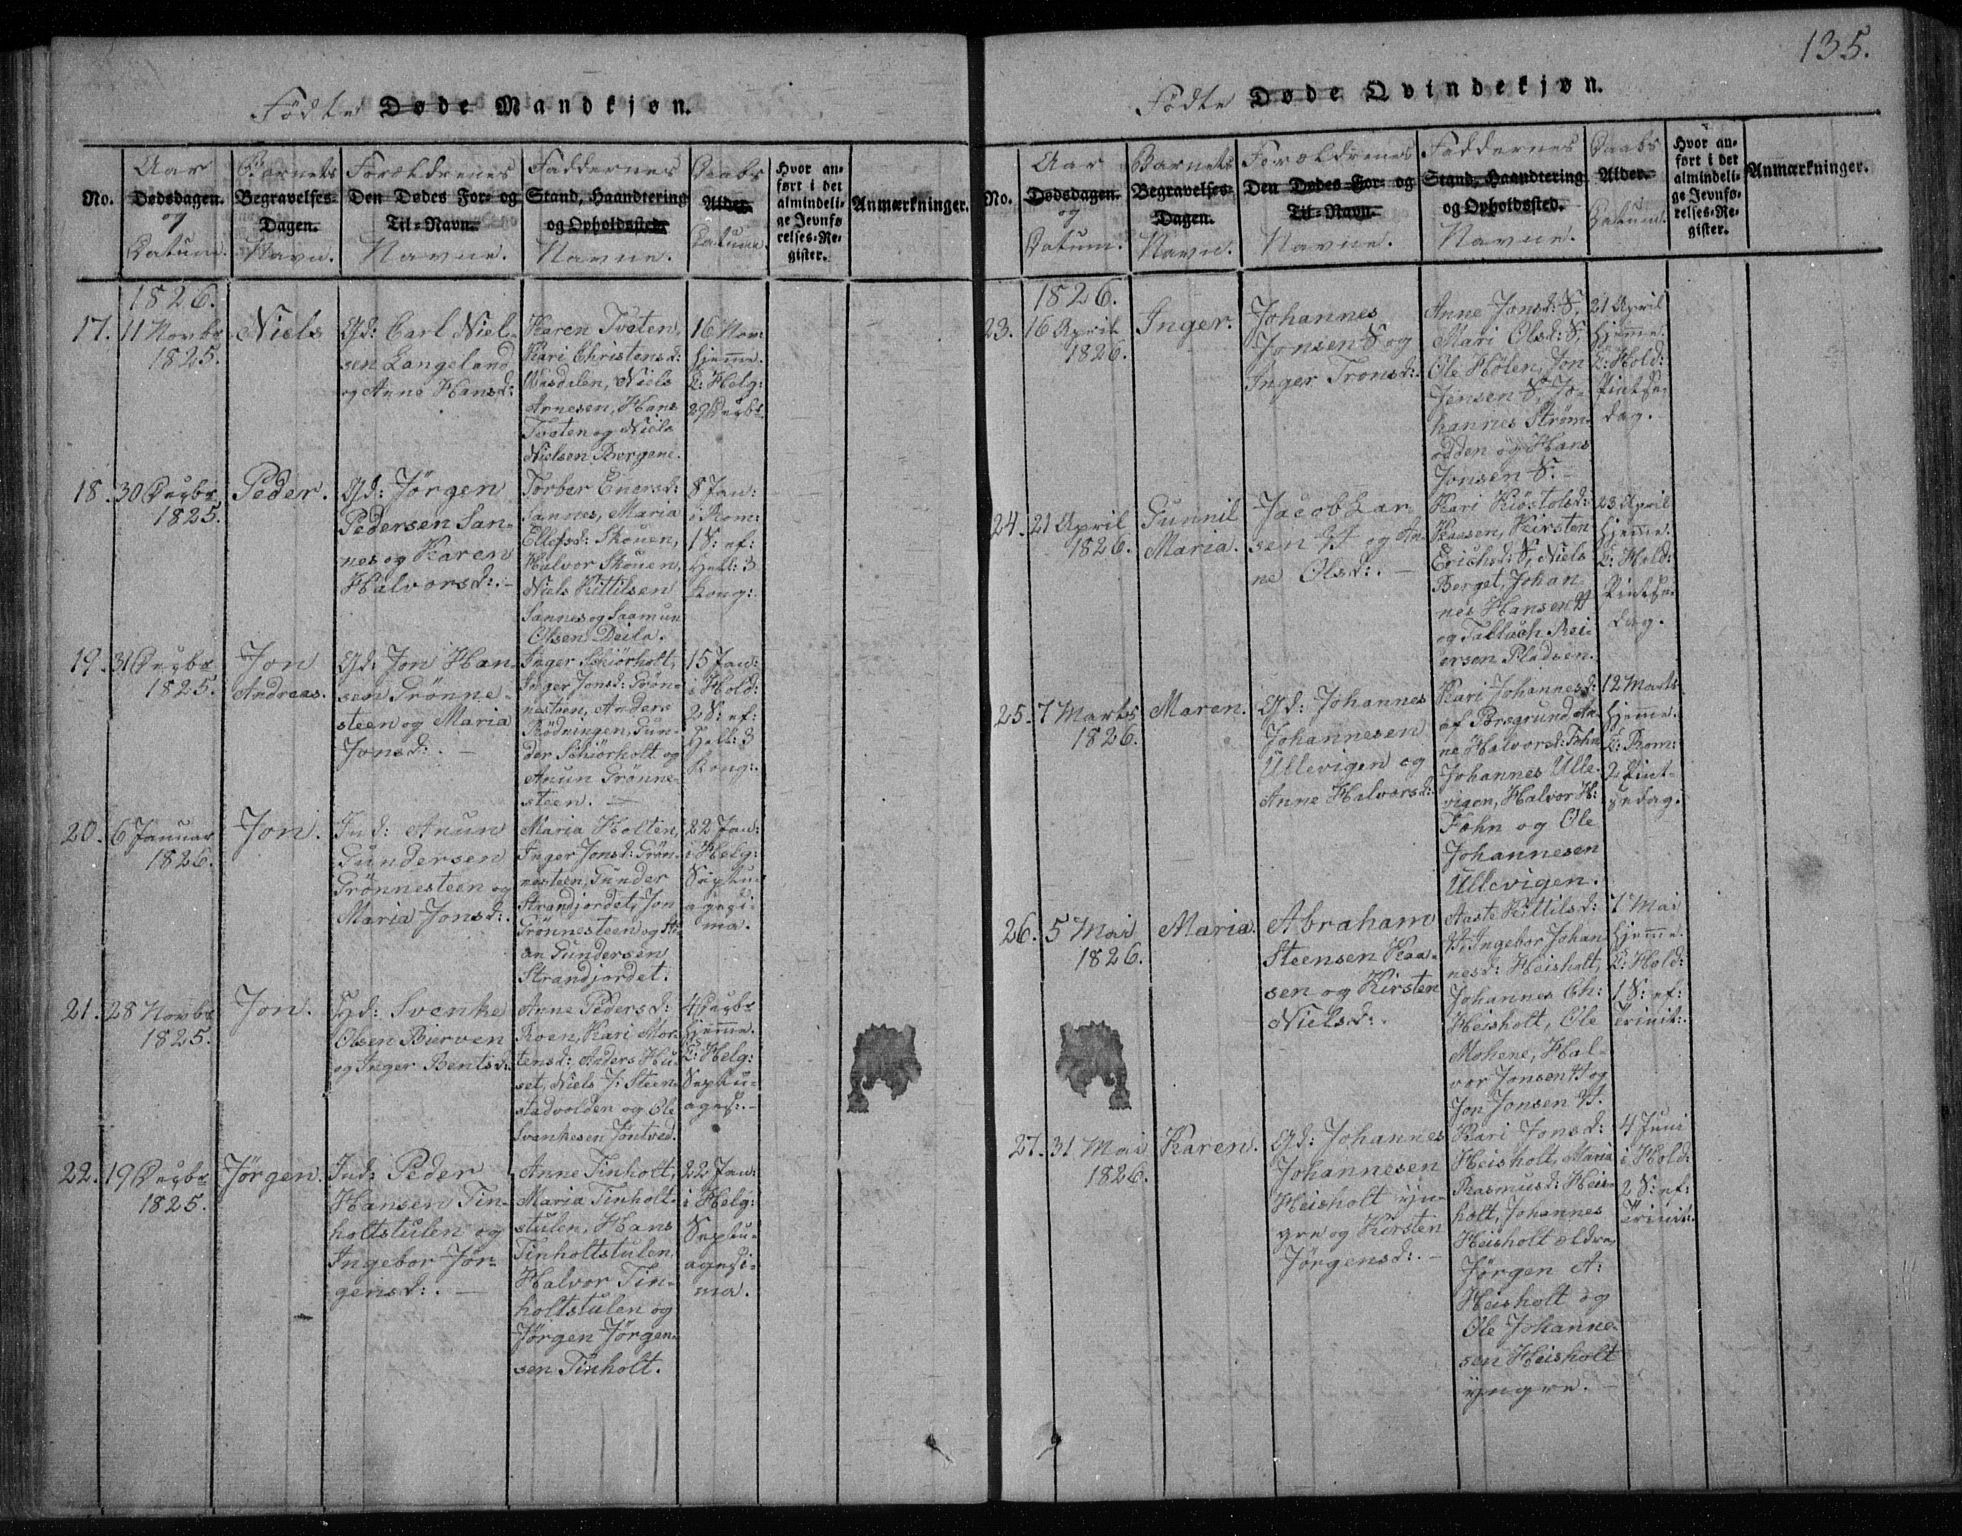 135.
Fødte Døde Mandkjøn.
No.
Aar
Dødsdagen.
og
Datum.
Barnets
Begravelses-
Dagen.
Navn.
Forældrenes
Den Dødes For- og
Til-Navn.
Navne.
Faddernes
Stand, Haandtering
og Opholdssted.
Navne.
Daabs
Alder.
Datum.
Hvor an-
ført i det
almindeli-
ge Jevnfø
relses-Re-
gister.
Anmærkninger.
1826.
17. 11 Novbr
1825.
Niels
Gd: Carl Niel-
sen Langeland
og Anne Hansd:
Karen Tveten,
Kari Christensd:
Niels
Arnesen, Hans
Tveten og Niels
Nielsen Bergene.
16 Nov:
hjemme.
D: Helg:
29 Decbr
18. 30 Decbr
1825.
Peder.
Gd: Jørgen
Pedersen San-
nes og Karen
Halvorsd: –
Torber Enersd:
Sannes, Maria
Ellefsd: Skouen,
Halvor Skouen,
Niels Kittilsen
Sannes og Saamun
Olsen Deila.
8 Jan:
i Rom:
1 S: ef:
Hell: 3
Kong:
19. 31 Decbr
1825.
Jon
Andreas.
Gd: Jon Han-
sen Grønne-
steen og Maria
Jonsd: –
Inger Schiørholt,
Inger Jonsd: Grøn-
nesteen, Anders
Rødningen, Gun-
der Schiørholt og
Anun Grønne-
steen. –
15 Jan:
i Hold:
2 S: ef:
Hell: 3
Kong:
20. 6 Januar
1826.
Jon.
Ind: Anun
Gundersen
Grønnesteen og
Maria Jonsd:
Maria Holten,
Inger Jonsd: Grøn-
nesteen, Gunder
Strandjordet, Jon
Grønnesteen og
Gundersen
Strandjordet.
22 Jan:
i Helg:
Septu-
agesi-
ma.
21. 28 Novbr
1825.
Jon.
Gd: Svenke
Olsen Bierven
og Inger Bentsd:
Anne Pedersd:
Roen, Kari Mor-
tensd: Anders Hu-
set, Niels J: Steen-
stadvolden og Ole
Svenkesen Jøntved.
4 Decbr
hjemme.
D: Helg:
Septu-
ages: –
22. 19 Decbr
1825.
Jørgen.
Ind: Peder
Hansen Tin-
holtstulen og
Ingebor Jør-
gensd: –
Anne Tinholt,
Maria Tinholt-
stulen, Hans
Tinholtstulen,
Halvor Tin-
holtstulen og
Jørgen Jørgen-
sen Tinholt.
22 Jan:
i Helg:
Septu-
agesi-
ma.
Fødte Døde Qvindekjøn.
No.
Aar
Dødsdagen.
og
Datum.
Barnets
Begravelses-
Dagen.
Navn.
Forældrenes
Den Dødes For- og
Til-Navn.
Navne.
Faddernes
Stand, Haandtering
og Opholdssted.
Navne.
Daabs
Alder.
Datum.
Hvor an-
ført i det
almindeli-
ge Jevnfø-
relses-Re-
gister.
Anmærkninger.
1826.
23. 16 April
1826.
Inger.
Johannes
Jonsen S og
Inger Tronsd:
Anne Jonsd: S,
Mari Olsd: S,
Ole Hølen, Jon
Jensen S, Jo-
hannes Strøm-
odden og Hans
Jonsen S. –
21 April
hjemme.
D: Hold:
Pintse-
dag.
24. 21 April
1826.
Gunnil
Maria.
Jacob Lar-
sen H og An-
ne Olsd: –
Kari Kiøstolsd:
Kaasen, Kirsten
Erichsd: S, Niels
Berget, Johan-
nes Hansen H
og Tallach Rei-
ersen Pladsen.
23 April
hjemme.
D: Hold:
Pintse-
dag.
25. 7 Marts
1826.
Maren.
Gd: Johannes
Johannesen
Ullevigen og
Anne Halvorsd:
Kari Johannesd:
af Porsgrund An-
ne Halvorsd: Fæhn
Johannes Ulle-
vigen, Halvor H:
Fæhn og Ole
Johannesen
Ullevigen.
12 Marts
hjemme.
D: Rom:
2 Pint-
sedag.
26. 5 Mai
1826.
Maria.
Abraham
Steensen Kaa-
sen og Kirsten
Nielsd:
Aaste Kittilsd:
H, Ingebor Johan-
nesd: Heisholt,
Johannes Ch:
Heisholt, Ole
Mohene, Hal-
vor Jonsen H og
Jon Jonsen H.
7 Mai
hjemme.
D: Hold:
1 S: ef:
Trinit:
27. 31 Mai
1826.
Karen.
Gd: Johannes
Johannesen
Heisholt yn-
gre og Kirsten
Jørgensd: –
Kari Jonsd:
Heisholt, Maria
Rasmusd: Heis-
holt, Johannes
Heisholt ældre,
Jørgen A:
Heisholt og
Ole Johanne-
sen Heisholt
yngre. –
4 Juni
i Hold:
2 S: ef:
Trinit: